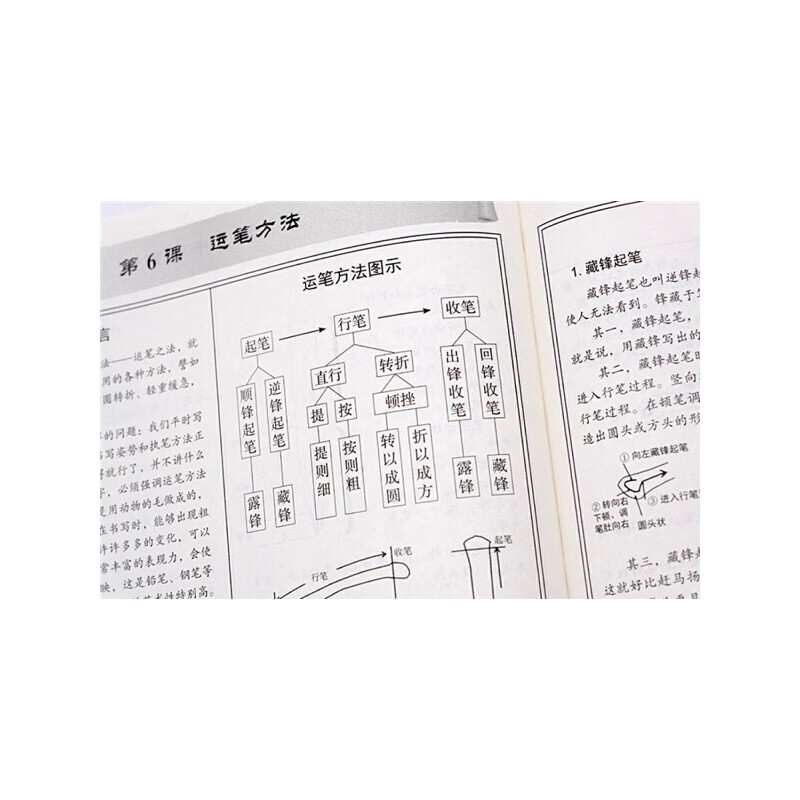 第6课 运笔方法
言
法——运笔之法，就
用的各种方法，譬如
圆转折、轻重缓急，
的问题：我们平时写
写姿势和执笔方法正
就行了，并不讲什么
字，必须强调运笔方法
是用动物的毛做成的，
在书写时，能够出现粗
许许多多的变化，可以
常丰富的表现力，会使
映，这是铅笔、钢笔等
艺术性特别高。
运笔方法图示
起笔
行笔
收笔
顺锋起笔
逆锋起笔
直行
转折
出锋收笔
回锋收笔
提
按
顿挫
提则细
按则粗
转以成圆
折以成方
露锋
藏锋
露锋
藏锋
行笔
收笔
起笔
1. 藏锋起笔
藏锋起笔也叫逆锋起
使人无法看到。锋藏于
其一，藏锋起笔，
就是说，用藏锋写出的
其二，藏锋起笔
进入行笔过程。竖向
行笔过程。在顿笔调
造出圆头或方头的形
①向左藏锋起笔
②转向右
下顿、调
笔肚向右
③进入行笔
圆头状
其三，藏锋
这就好比赶马扬